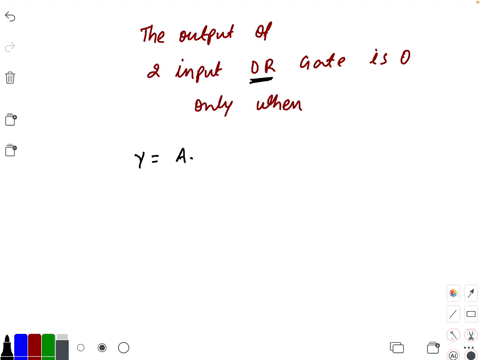 The output of
2 input OR Gate is 0
only when
Y = A.